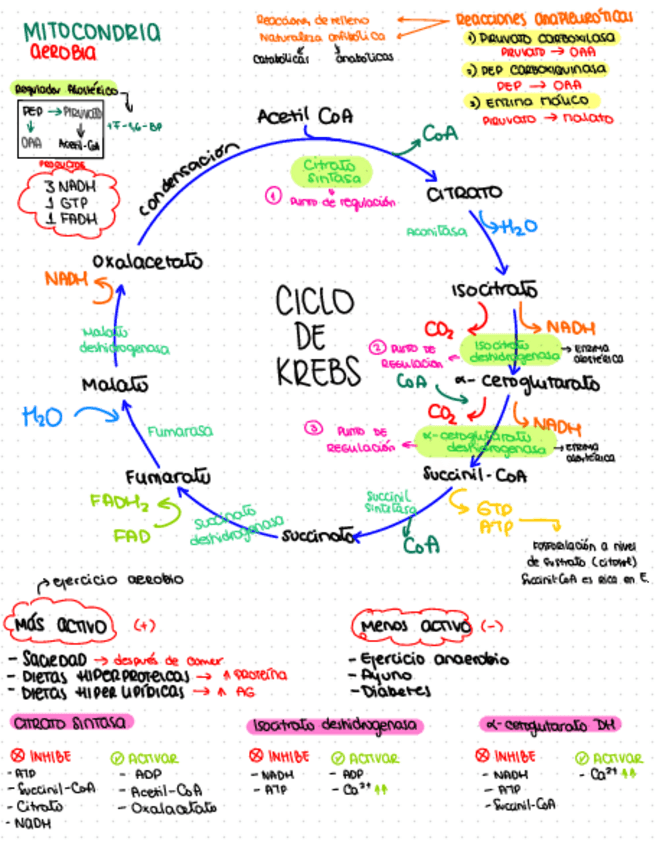 MITOCONDRIA
AEROBIA
Reacciones de relleno
Naturaleza anfibólica
catabólicas anabólicas
REACCIONES ANAPLEURÓTICAS
1) PIRUVATO CARBOXILASA
PIRUVATO → OAA
2) PEP CARBOXIQUINASA
PEP → OAA
3) ENZIMA MÁLICO
PIRUVATO → malato
Regulador Alostérico
PEP → PIRUVATO
OAA Acetil-CoA
+F-1,6-BP
PRODUCTOS
3 NADH
1 GTP
1 FADH
Acetil CoA
CoA
condensación
Citrato sintasa
① Punto de regulación
CITRATO
Aconitasa
H₂O
Isocitrato
CO₂
NADH
② PUNTO DE REGULACIÓN
Isocitrato deshidrogenasa
→ ENZIMA alostérica
CoA
α-cetoglutarato
CO₂
NADH
③ PUNTO DE REGULACIÓN
α-cetoglutarato deshidrogenasa
→ ENZIMA alostérica
Succinil-CoA
GTP
ATP
FOSFORILACIÓN a nivel
de sustrato (citosol)
Succinil-CoA es rica en E.
Succinil sintetasa
CoA
succinato
Succinato deshidrogenasa
FADH₂
FAD
Fumarato
Fumarasa
H₂O
Malato
Malato deshidrogenasa
NADH
Oxalacetato
CICLO
DE
KREBS
→ ejercicio aerobio
MÁS ACTIVO (+)
- SACIEDAD → después de comer
- DIETAS HIPERPROTEICAS → ↑ PROTEÍNA
- DIETAS HIPERLIPÍDICAS → ↑ AG
Menos activo (-)
- Ejercicio anaerobio
- Ayuno
- Diabetes
CITRATO SINTASA
⊗ INHIBE
- ATP
- Succinil-CoA
- Citrato
- NADH
✓ ACTIVAR
- ADP
- Acetil-CoA
- Oxalacetato
Isocitrato deshidrogenasa
⊗ INHIBE
- NADH
- ATP
✓ ACTIVAR
- ADP
- Ca²⁺ ↑↑
α-cetoglutarato DH
⊗ INHIBE
- NADH
- ATP
- Succinil-CoA
✓ ACTIVAR
- Ca²⁺ ↑↑